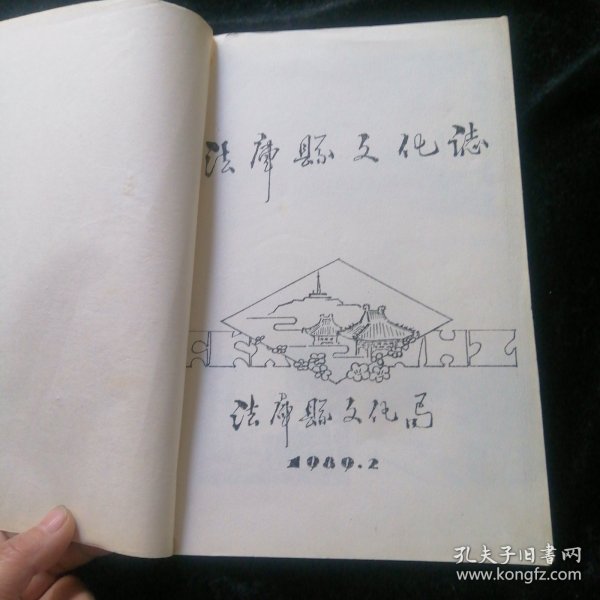 法庫縣文化誌
法庫縣文化局
1989.2
孔夫子旧书网
www.kongfz.com